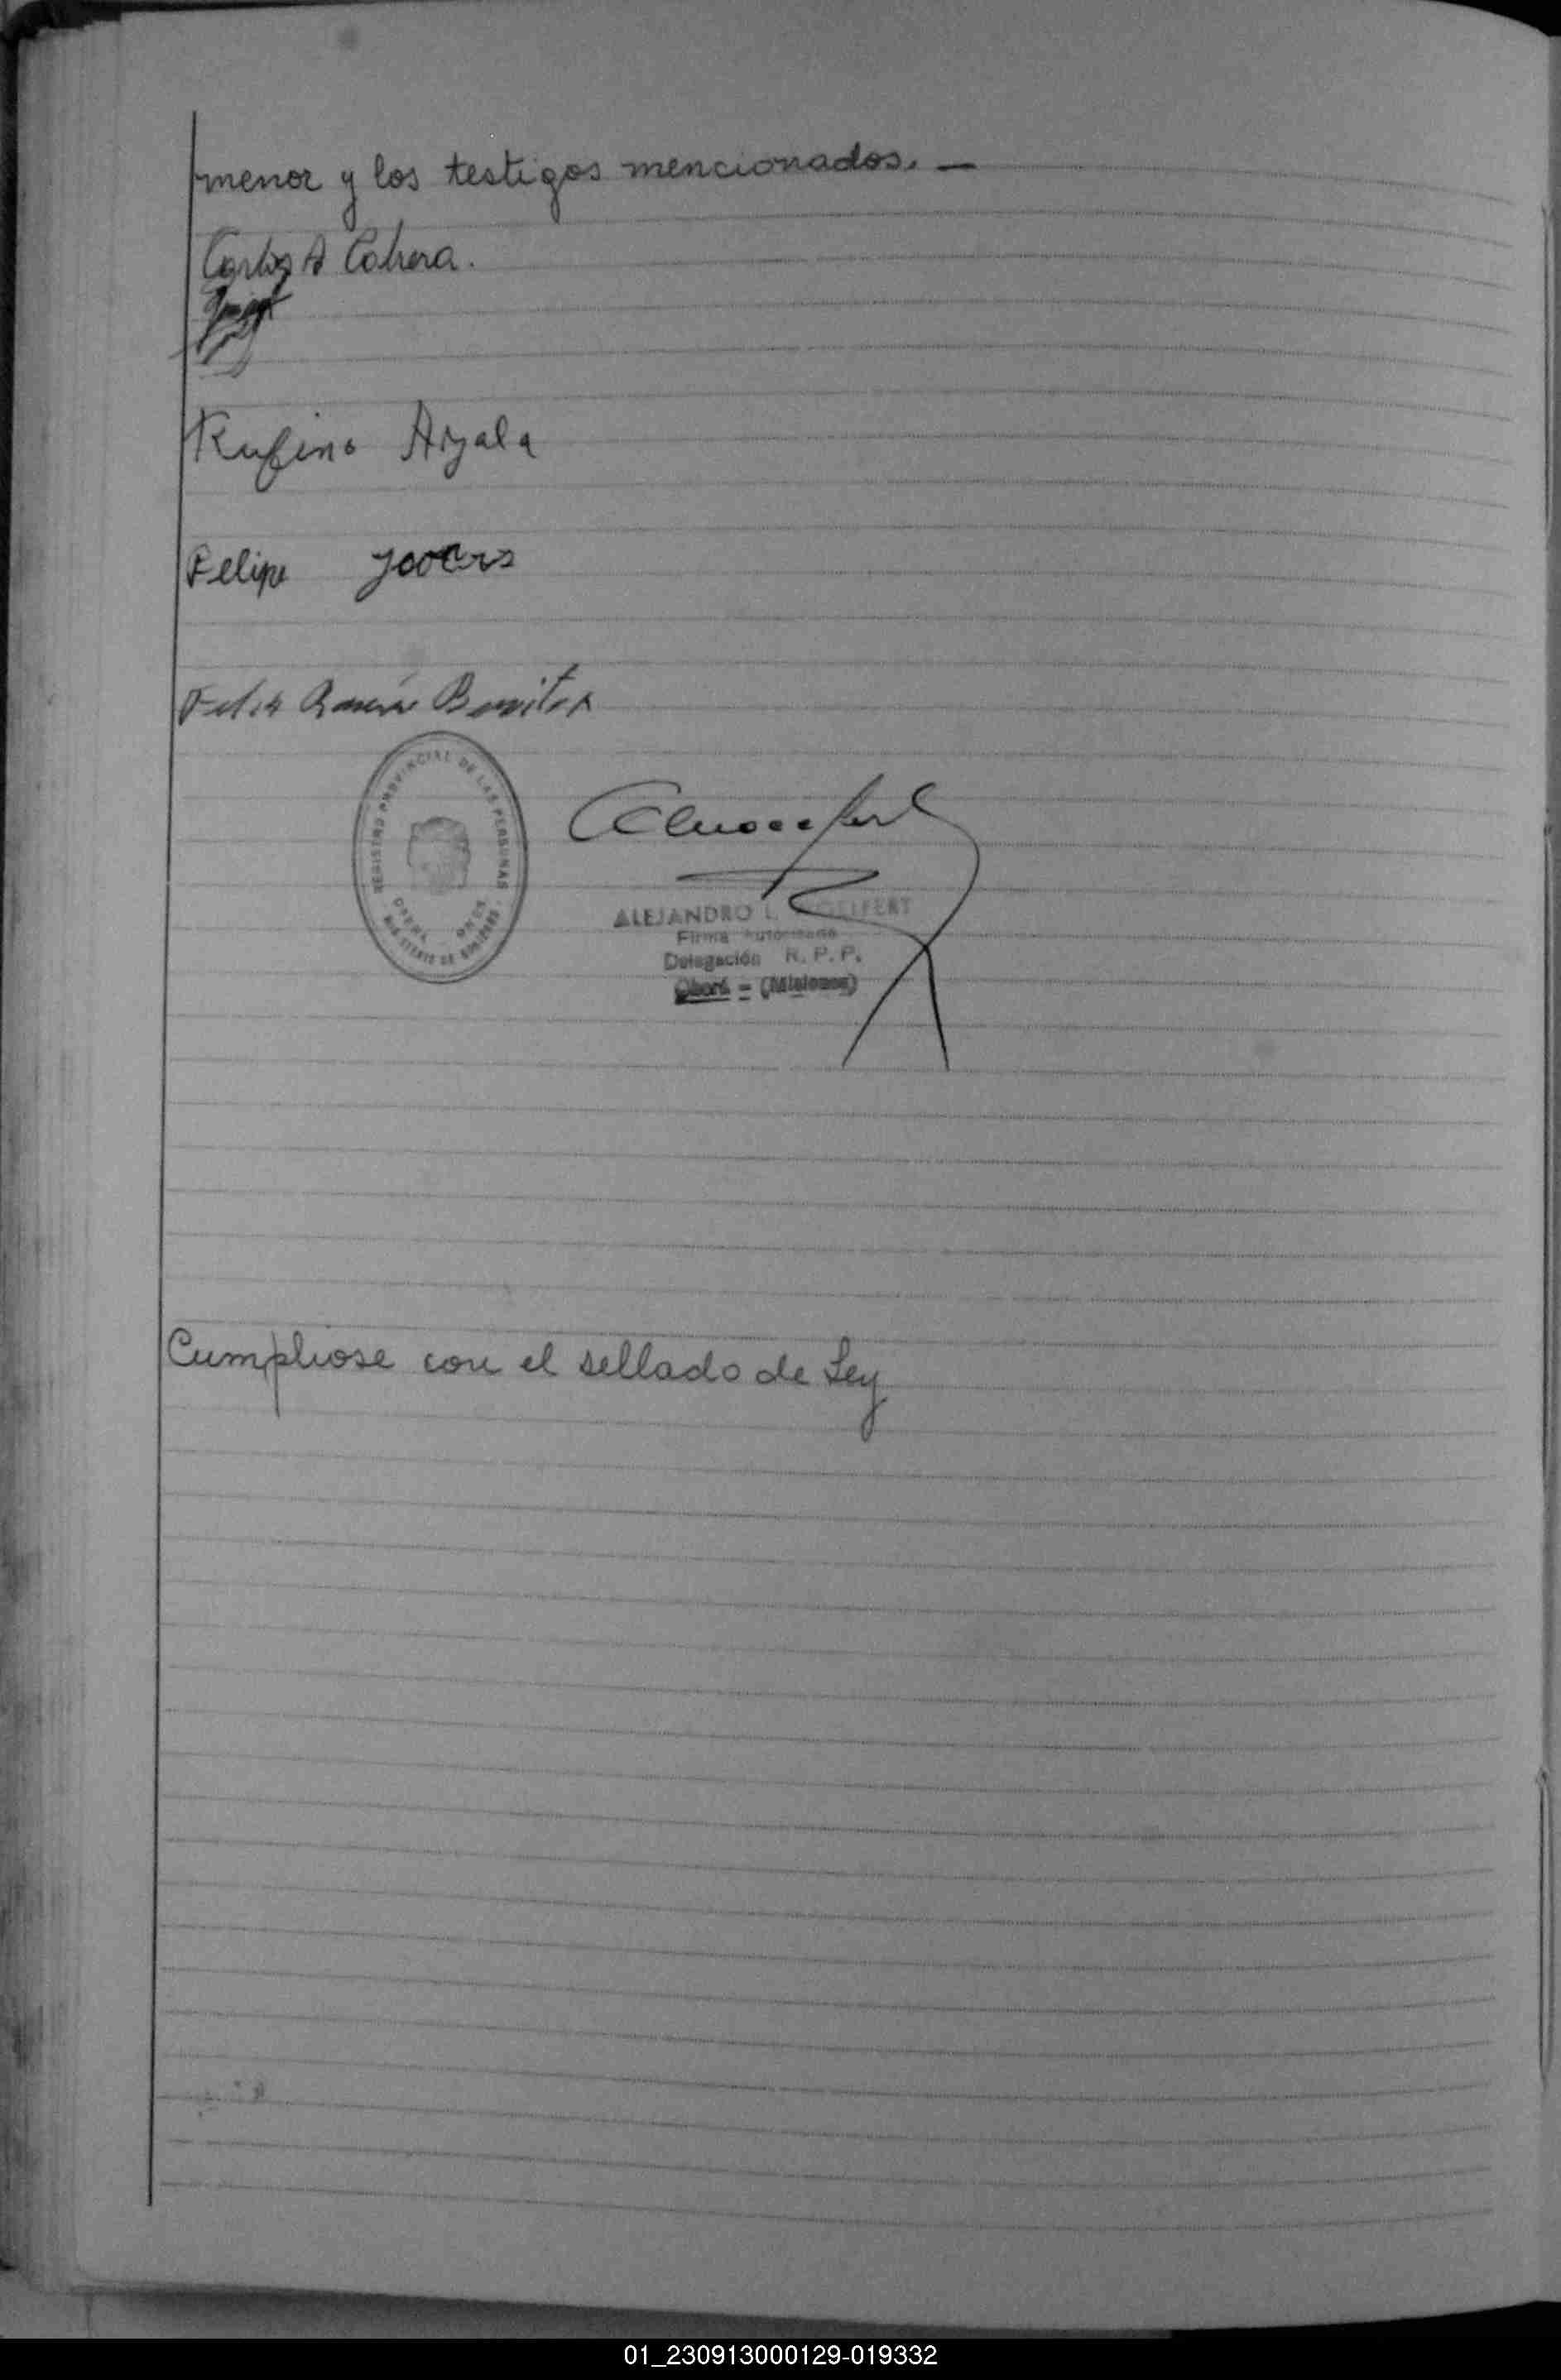 menor y los testigos mencionados. —
Carlos A Cabrera.
Rufino Ayala
Felipe
Felix Ramón Benitez
REGISTRO PROVINCIAL DE LAS PERSONAS
MINISTERIO DE GOBIERNO
ALEJANDRO L.
Firma Autorizada
Delegación R. P. P.
Oberá - (Misiones)
Cumpliose con el sellado de Ley
01_230913000129-019332